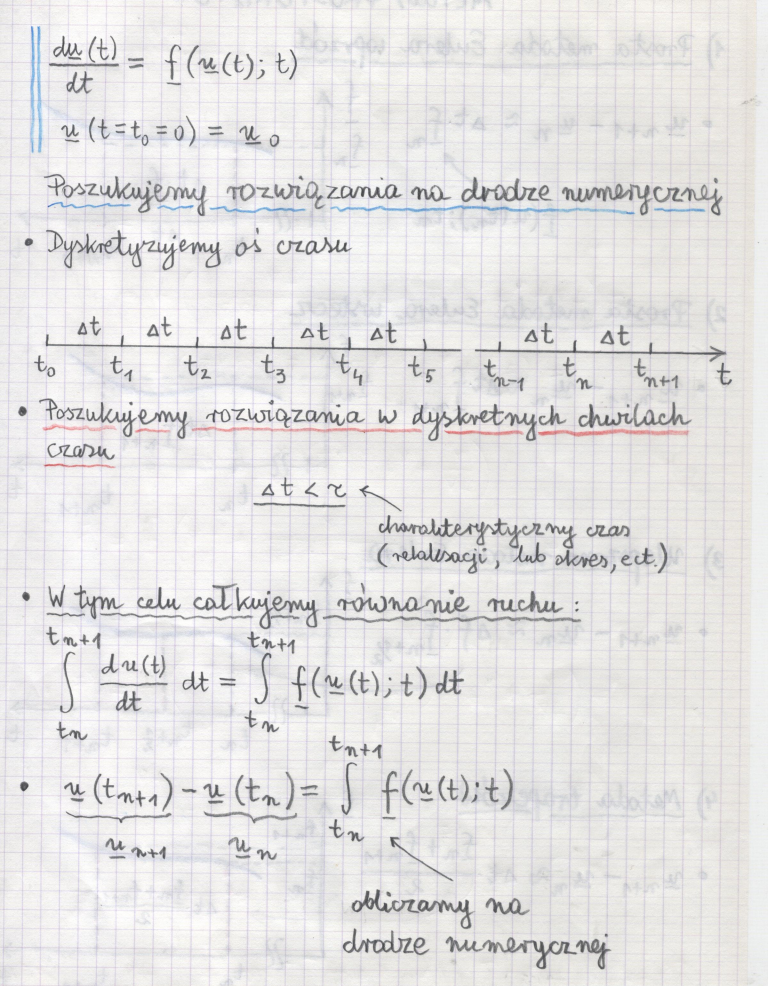 du(t)/dt = f(u(t); t)
u(t=t₀=0) = u₀
Poszukujemy rozwiązania na drodze numerycznej
• Dyskretyzujemy oś czasu
Δt Δt Δt Δt Δt Δt Δt
t₀ t₁ t₂ t₃ t₄ t₅ tₙ₋₁ tₙ tₙ₊₁ t
• Poszukujemy rozwiązania w dyskretnych chwilach
czasu
Δt < τ
charakterystyczny czas
(relaksacji, lub okres, ect.)
• W tym celu całkujemy równanie ruchu :
∫_{tₙ}^{tₙ₊₁} du(t)/dt dt = ∫_{tₙ}^{tₙ₊₁} f(u(t); t) dt
• u(tₙ₊₁) - u(tₙ) = ∫_{tₙ}^{tₙ₊₁} f(u(t); t)
uₙ₊₁ uₙ
obliczamy na
drodze numerycznej